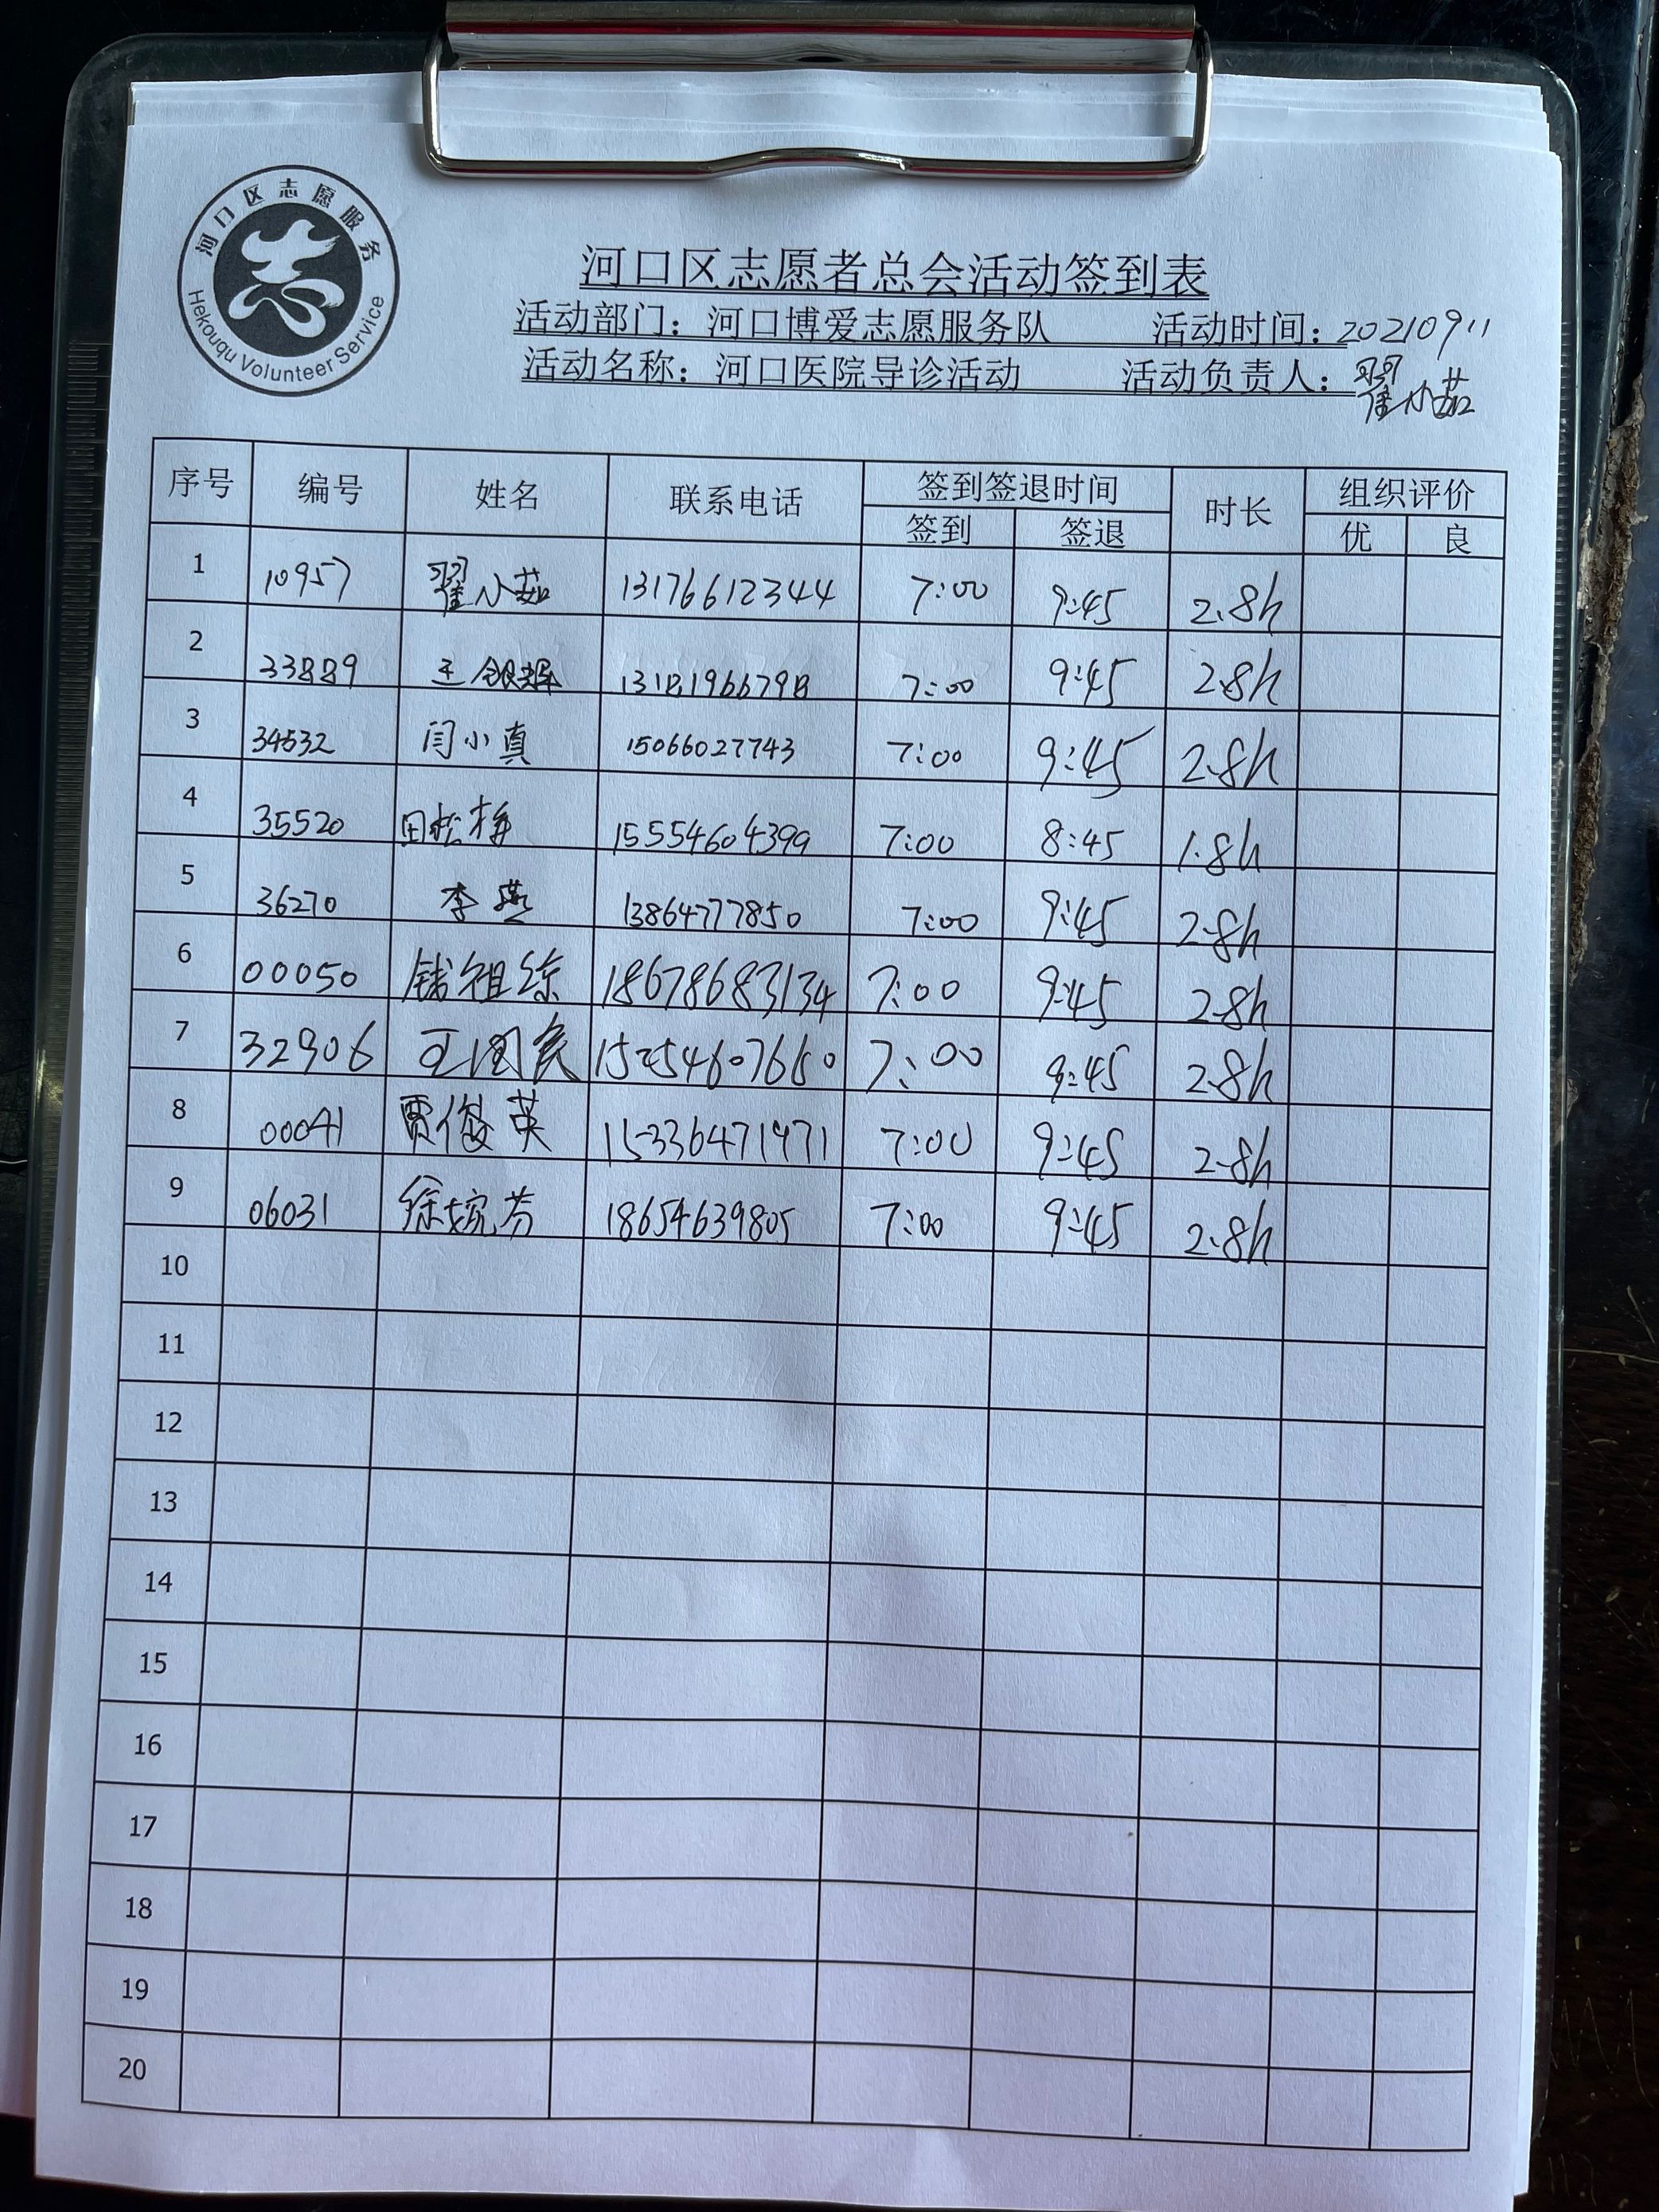 河口区志愿服务
Hekouqu Volunteer Service
河口区志愿者总会活动签到表
活动部门：河口博爱志愿服务队 活动时间：20210911
活动名称：河口医院导诊活动 活动负责人：翟小茹
序号 编号 姓名 联系电话 签到签退时间 时长 组织评价
签到 签退 优 良
1 10957 翟小茹 13176612344 7:00 9:45 2.8h
2 33889 王银辉 13181966798 7:00 9:45 2.8h
3 34532 闫小真 15066027743 7:00 9:45 2.8h
4 35520 田松梅 15554604399 7:00 8:45 1.8h
5 36270 李燕 13864777850 7:00 9:45 2.8h
6 00050 钱祖综 18678683134 7:00 9:45 2.8h
7 32906 王国民 7:00 9:45 2.8h
8 00041 贾俊英 15336471971 7:00 9:45 2.8h
9 06031 徐婉芬 18654639805 7:00 9:45 2.8h
10
11
12
13
14
15
16
17
18
19
20